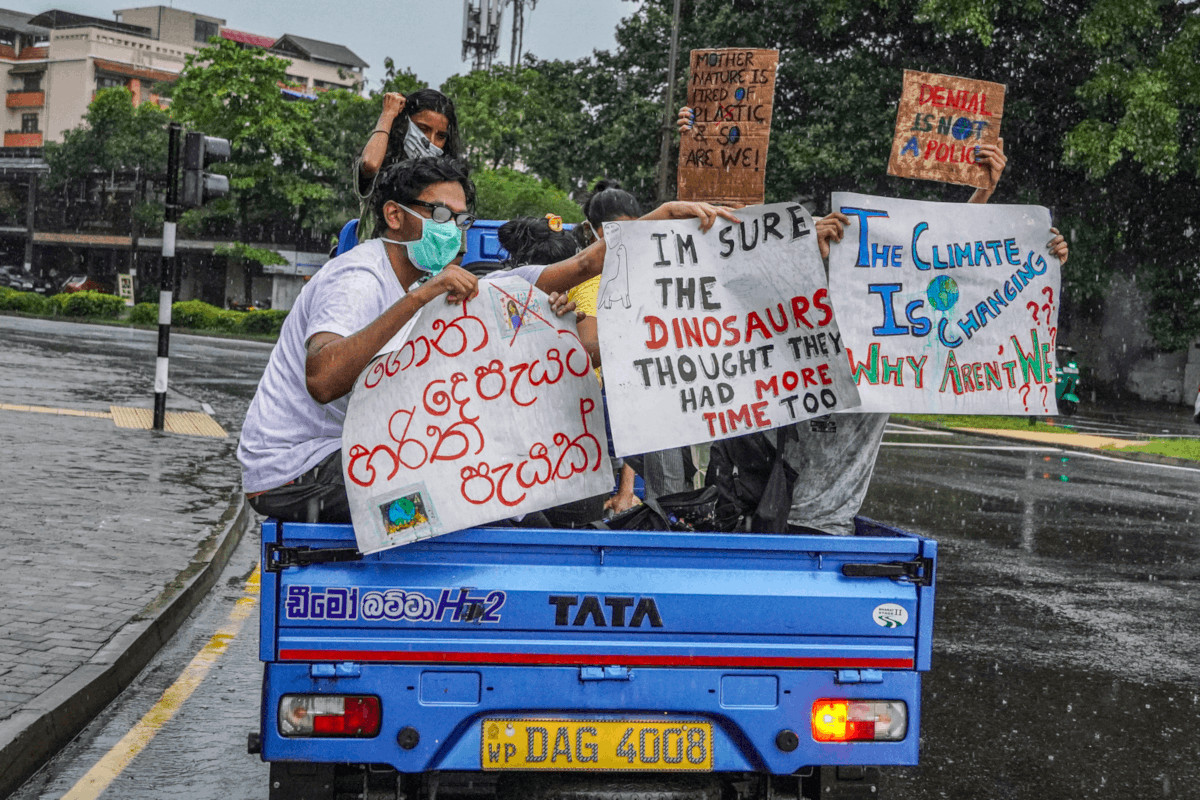 MOTHER
NATURE IS
TIRED OF
PLASTIC
& SO
ARE WE!
DENIAL
IS NOT
A POLICY
ගොන්
දෙපැයට
හරිත
පැයක්
I'M SURE
THE
DINOSAURS
THOUGHT THEY
HAD MORE
TIME TOO
THE CLIMATE
IS CHANGING
WHY AREN'T WE
? ? ? ? ?
ඩිමෝ බට්ටා HT2
TATA
WP DAG 4008